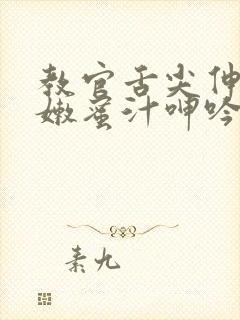 教官舌尖伸
嫩蜜汁呻吟
素九